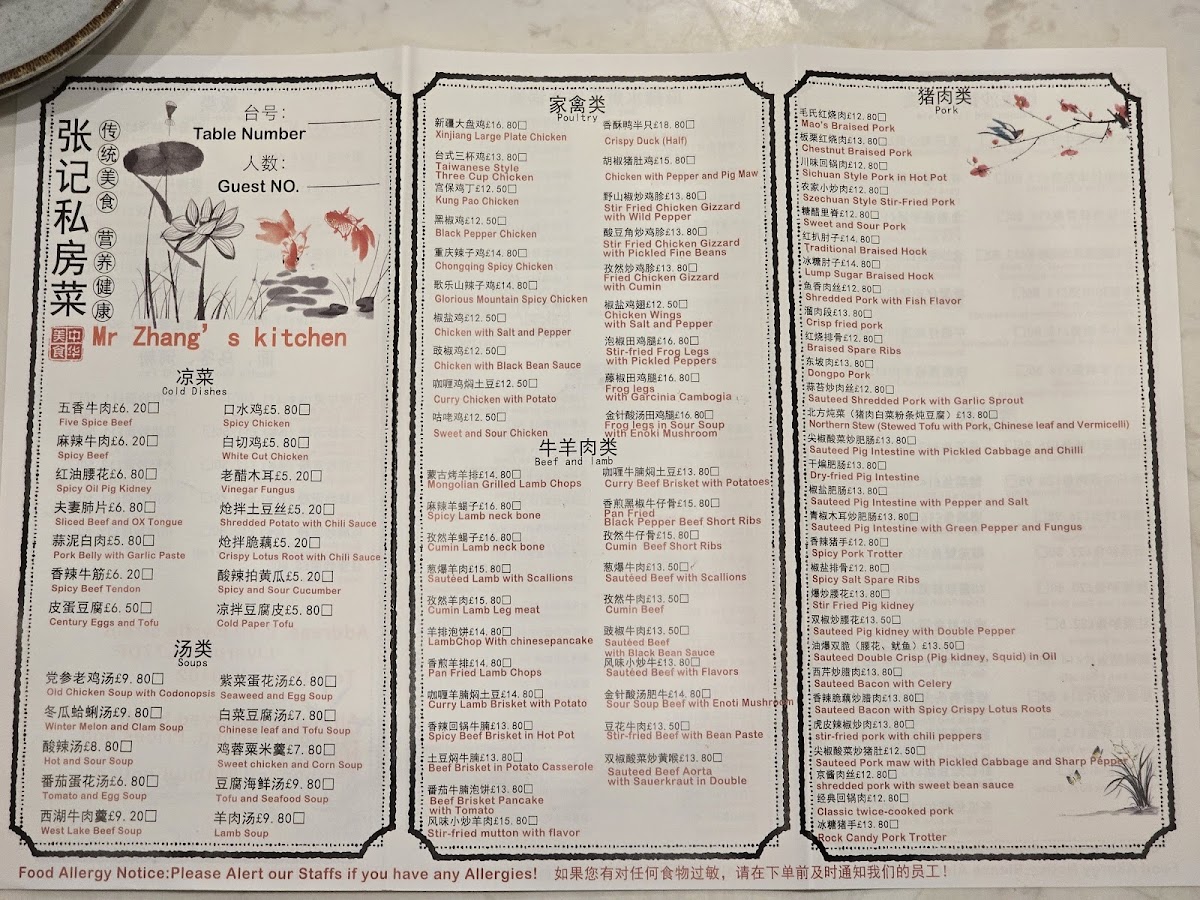 张记私房菜
传统美食 营养健康
台号:
Table Number
人数:
Guest NO.
中华美食
Mr Zhang's kitchen
凉菜
Cold Dishes
五香牛肉£6.20□
Five Spice Beef
麻辣牛肉£6.20□
Spicy Beef
红油腰花£6.80□
Spicy Oil Pig Kidney
夫妻肺片£6.80□
Sliced Beef and OX Tongue
蒜泥白肉£5.80□
Pork Belly with Garlic Paste
香辣牛筋£6.20□
Spicy Beef Tendon
皮蛋豆腐£6.50□
Century Eggs and Tofu
口水鸡£5.80□
Spicy Chicken
白切鸡£5.80□
White Cut Chicken
老醋木耳£5.20□
Vinegar Fungus
炝拌土豆丝£5.20□
Shredded Potato with Chili Sauce
炝拌脆藕£5.20□
Crispy Lotus Root with Chili Sauce
酸辣拍黄瓜£5.20□
Spicy and Sour Cucumber
凉拌豆腐皮£5.80□
Cold Paper Tofu
汤类
Soups
党参老鸡汤£9.80□
Old Chicken Soup with Codonopsis
冬瓜蛤蜊汤£9.80□
Winter Melon and Clam Soup
酸辣汤£8.80□
Hot and Sour Soup
番茄蛋花汤£6.80□
Tomato and Egg Soup
西湖牛肉羹£9.20□
West Lake Beef Soup
紫菜蛋花汤£6.80□
Seaweed and Egg Soup
白菜豆腐汤£7.80□
Chinese leaf and Tofu Soup
鸡蓉粟米羹£7.80□
Sweet chicken and Corn Soup
豆腐海鲜汤£9.80□
Tofu and Seafood Soup
羊肉汤£9.80□
Lamb Soup
家禽类
Poultry
新疆大盘鸡£16.80□
Xinjiang Large Plate Chicken
台式三杯鸡£13.80□
Taiwanese Style
Three Cup Chicken
宫保鸡丁£12.50□
Kung Pao Chicken
黑椒鸡£12.50□
Black Pepper Chicken
重庆辣子鸡£14.80□
Chongqing Spicy Chicken
歌乐山辣子鸡£14.80□
Glorious Mountain Spicy Chicken
椒盐鸡£12.50□
Chicken with Salt and Pepper
豉椒鸡£12.50□
Chicken with Black Bean Sauce
咖喱鸡焖土豆£12.50□
Curry Chicken with Potato
咕咾鸡£12.50□
Sweet and Sour Chicken
香酥鸭半只£18.80□
Crispy Duck (Half)
胡椒猪肚鸡£15.80□
Chicken with Pepper and Pig Maw
野山椒炒鸡胗£13.80□
Stir Fried Chicken Gizzard
with Wild Pepper
酸豆角炒鸡胗£13.80□
Stir Fried Chicken Gizzard
with Pickled Fine Beans
孜然炒鸡胗£13.80□
Fried Chicken Gizzard
with Cumin
椒盐鸡翅£12.50□
Chicken Wings
with Salt and Pepper
泡椒田鸡腿£16.80□
Stir-fried Frog Legs
with Pickled Peppers
藤椒田鸡腿£16.80□
Frog legs
with Garcinia Cambogia
金针酸汤田鸡腿£16.80□
Frog legs in Sour Soup
with Enoki Mushroom
牛羊肉类
Beef and lamb
蒙古烤羊排£14.80□
Mongolian Grilled Lamb Chops
麻辣羊蝎子£16.80□
Spicy Lamb neck bone
孜然羊蝎子£16.80□
Cumin Lamb neck bone
葱爆羊肉£15.80□
Sautéed Lamb with Scallions
孜然羊肉£15.80□
Cumin Lamb Leg meat
羊排泡饼£14.80□
LambChop With chinesepancake
香煎羊排£14.80□
Pan Fried Lamb Chops
咖喱羊腩焖土豆£14.80□
Curry Lamb Brisket with Potato
香辣回锅牛腩£13.80□
Spicy Beef Brisket in Hot Pot
土豆焖牛腩£13.80□
Beef Brisket in Potato Casserole
番茄牛腩泡饼£13.80□
Beef Brisket Pancake
with Tomato
风味小炒羊肉£15.80□
Stir-fried mutton with flavor
咖喱牛腩焖土豆£13.80□
Curry Beef Brisket with Potatoes
香煎黑椒牛仔骨£15.80□
Pan Fried
Black Pepper Beef Short Ribs
孜然牛仔骨£15.80□
Cumin Beef Short Ribs
葱爆牛£13.50□
Sautéed Beef with Scallions
孜然牛£13.50□
Cumin Beef
豉椒牛£13.50□
Sautéed Beef
with Black Bean Sauce
风味小炒牛£13.80□
Sautéed Beef with Flavors
金针酸汤肥牛£14.80□
Sour Soup Beef with Enoti Mushroom
豆花牛£13.50□
Stir-fried Beef with Bean Paste
双椒酸菜炒黄喉£13.80□
Sauteed Beef Aorta
with Sauerkraut in Double
猪肉类
Pork
毛氏红烧肉£12.80□
Mao's Braised Pork
板栗红烧肉£13.80□
Chestnut Braised Pork
川味回锅肉£12.80□
Sichuan Style Pork in Hot Pot
农家小炒肉£12.80□
Szechuan Style Stir-Fried Pork
糖醋里脊£12.80□
Sweet and Sour Pork
红扒肘子£14.80□
Traditional Braised Hock
冰糖肘子£14.80□
Lump Sugar Braised Hock
鱼香肉丝£12.80□
Shredded Pork with Fish Flavor
溜肉段£13.80□
Crisp fried pork
红烧排骨£12.80□
Braised Spare Ribs
东坡肉£13.80□
Dongpo Pork
蒜苔炒肉丝£12.80□
Sauteed Shredded Pork with Garlic Sprout
北方炖菜（猪肉白菜粉条炖豆腐）£13.80□
Northern Stew (Stewed Tofu with Pork, Chinese leaf and Vermicelli)
尖椒酸菜炒肥肠£13.80□
Sauteed Pig Intestine with Pickled Cabbage and Chilli
干煸肥肠£13.80□
Dry-fried Pig Intestine
椒盐肥肠£13.80□
Sauteed Pig Intestine with Pepper and Salt
青椒木耳炒肥肠£13.80□
Sauteed Pig Intestine with Green Pepper and Fungus
香辣猪手£12.80□
Spicy Pork Trotter
椒盐排骨£12.80□
Spicy Salt Spare Ribs
爆炒腰花£13.80□
Stir Fried Pig kidney
双椒腰花£13.50□
Sauteed Pig kidney with Double Pepper
油爆双脆（腰花、鱿鱼）£13.50□
Sauteed Double Crisp (Pig kidney, Squid) in Oil
西芹炒腊肉£13.80□
Sauteed Bacon with Celery
香辣脆藕炒腊肉£13.80□
Sauteed Bacon with Spicy Crispy Lotus Roots
虎皮辣椒炒肉£13.80□
stir-fried pork with chili peppers
尖椒酸菜炒猪肚£12.50□
Sauteed Pork maw with Pickled Cabbage and Sharp Pepper
京酱肉丝£12.80□
shredded pork with sweet bean sauce
经典回锅肉£12.80□
Classic twice-cooked pork
冰糖猪手£13.80□
Rock Candy Pork Trotter
Food Allergy Notice:Please Alert our Staffs if you have any Allergies! 如果您有对任何食物过敏，请在下单前及时通知我们的员工！